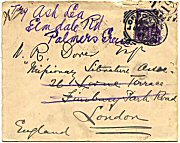 Ash Lea
Elmdale Rd
Palmers Green
W. R. Dover Esq
"Missionary Literature Assoc.
Terrace
Finsbury Park Road
London
England